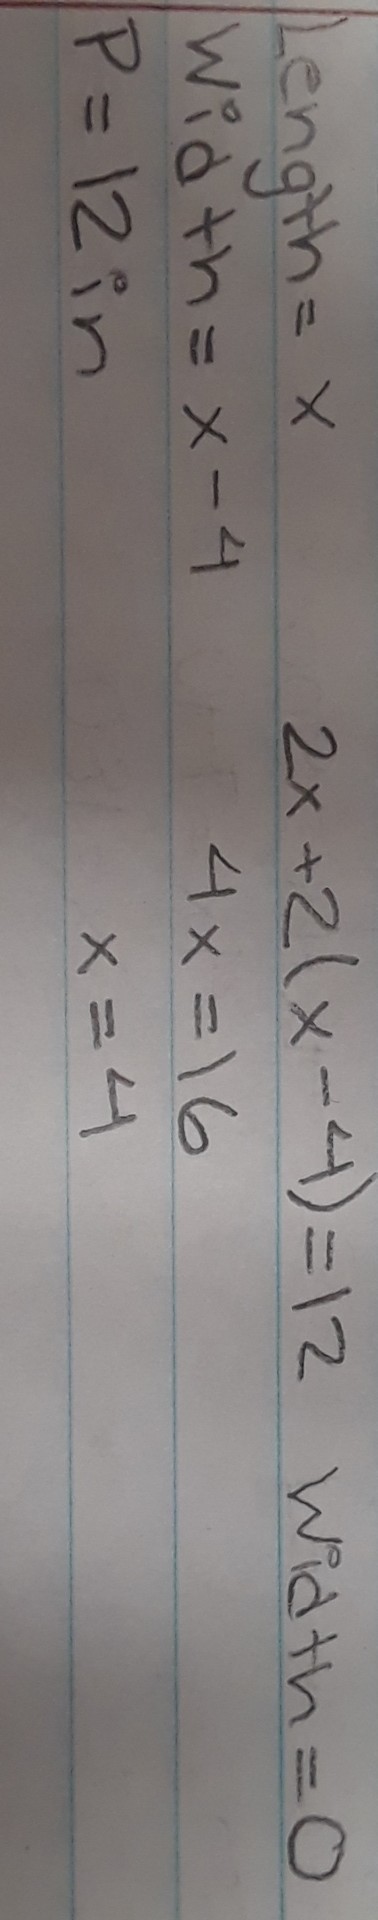 Length = x 2x + 2(x - 4) = 12 Width = 0
Width = x - 4 4x = 16
P = 12 in x = 4